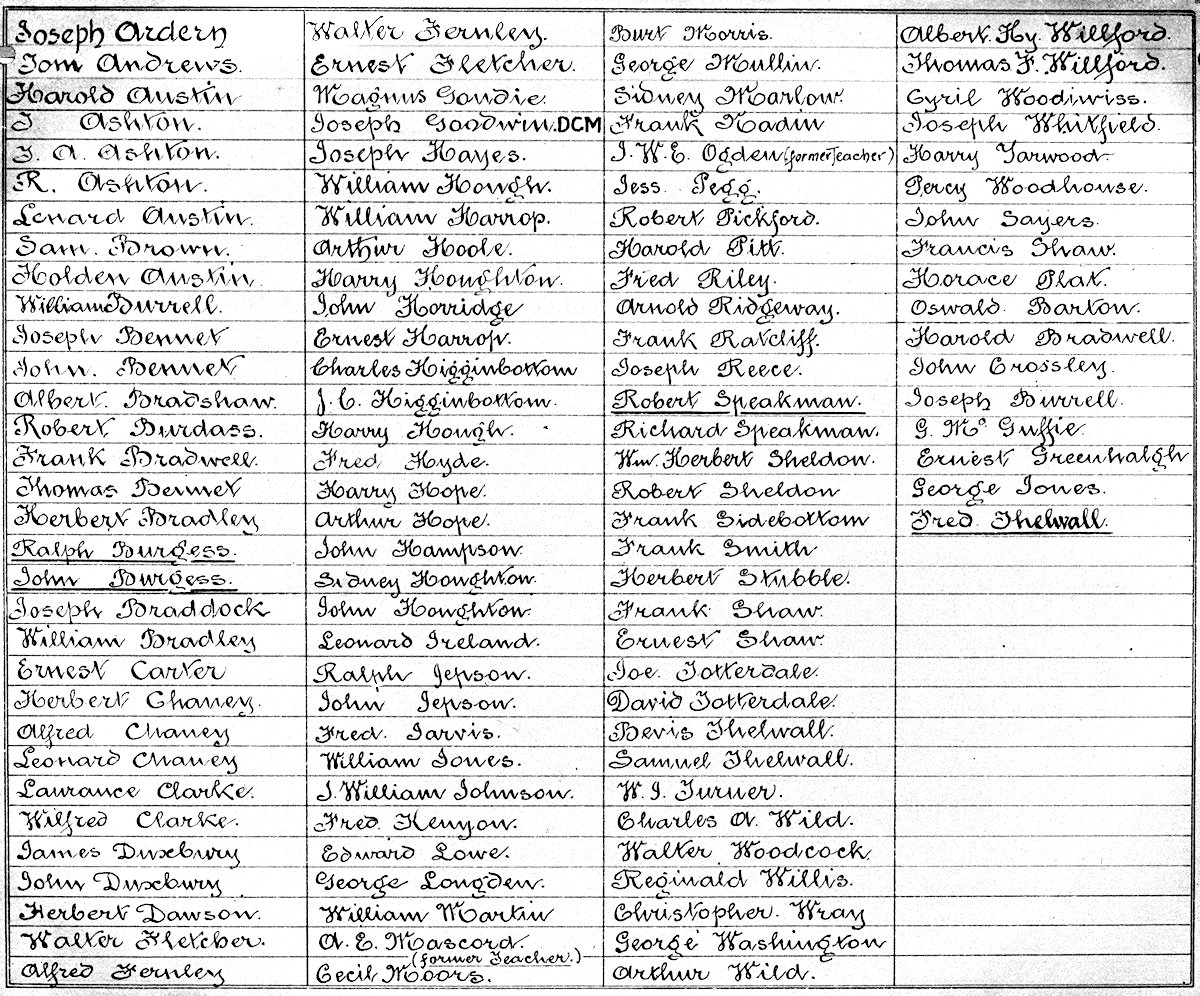 Joseph Ardern
Tom Andrews.
Harold Austin
J Ashton.
J. A. Ashton.
R. Ashton.
Lenard Austin.
Sam. Brown.
Holden Austin.
William Burrell.
Joseph Bennet
John. Bennet
Albert. Bradshaw.
Robert Burdass.
Frank Bradwell.
Thomas Bennet
Herbert Bradley
Ralph Burgess.
John Burgess.
Joseph Braddock
William Bradley
Ernest Carter
Herbert Chaney.
Alfred Chaney
Leonard Chaney
Laurance Clarke.
Wilfred Clarke.
James Duxbury
John Duxbury
Herbert Dawson.
Walter Fletcher.
Alfred Fernley
Walter Fernley.
Ernest Fletcher.
Magnus Goudie.
Joseph Goodwin.DCM
Joseph Hayes.
William Hough.
William Harrop.
Arthur Hoole.
Harry Houghton.
John Horridge
Ernest Harrop.
Charles Higginbottom
J. C. Higginbottom.
Harry Hough.
Fred Hyde.
Harry Hope.
Arthur Hope.
John Hampson
Sidney Houghton.
John Houghton.
Leonard Ireland.
Ralph Jepson.
John Jepson.
Fred. Jarvis.
William Jones.
J. William Johnson.
Fred. Kenyon.
Edward Lowe.
George Longden.
William Martin
A. E. Mascord.
(former Teacher.)
Cecil Moors.
Burt Morris.
George Mullin.
Sidney Marlow.
Frank Nadin
J. W. E. Ogden (former Teacher)
Jess. Pegg.
Robert Pickford.
Harold Pitt.
Fred Riley.
Arnold Ridgeway.
Frank Ratcliff.
Joseph Reece.
Robert Speakman.
Richard Speakman.
Wm. Herbert Sheldon.
Robert Sheldon
Frank Sidebottom
Frank Smith
Herbert Stubble.
Frank Shaw.
Ernest Shaw.
Joe. Totterdale.
David Totterdale.
Bevis Thelwall.
Samuel Thelwall.
W. J. Turner.
Charles A. Wild.
Walter Woodcock.
Reginald Willis.
Christopher. Wray
George Washington
Arthur Wild.
Albert. Hy. Willford.
Thomas F. Willford.
Cyril Woodiwiss.
Joseph Whitfield.
Harry Yarwood.
Percy Woodhouse.
John Sayers.
Francis Shaw.
Horace Plat.
Oswald Barton.
Harold Bradwell.
John Crossley.
Joseph Burrell.
G. Mc Guffie.
Ernest Greenhalgh
George Jones.
Fred. Thelwall.